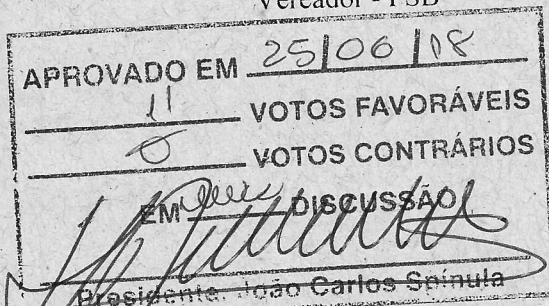 Vereador - PSB
APROVADO EM 25/06/18
11 VOTOS FAVORÁVEIS
0 VOTOS CONTRÁRIOS
EM DISCUSSÃO
Presidente: João Carlos Spínula